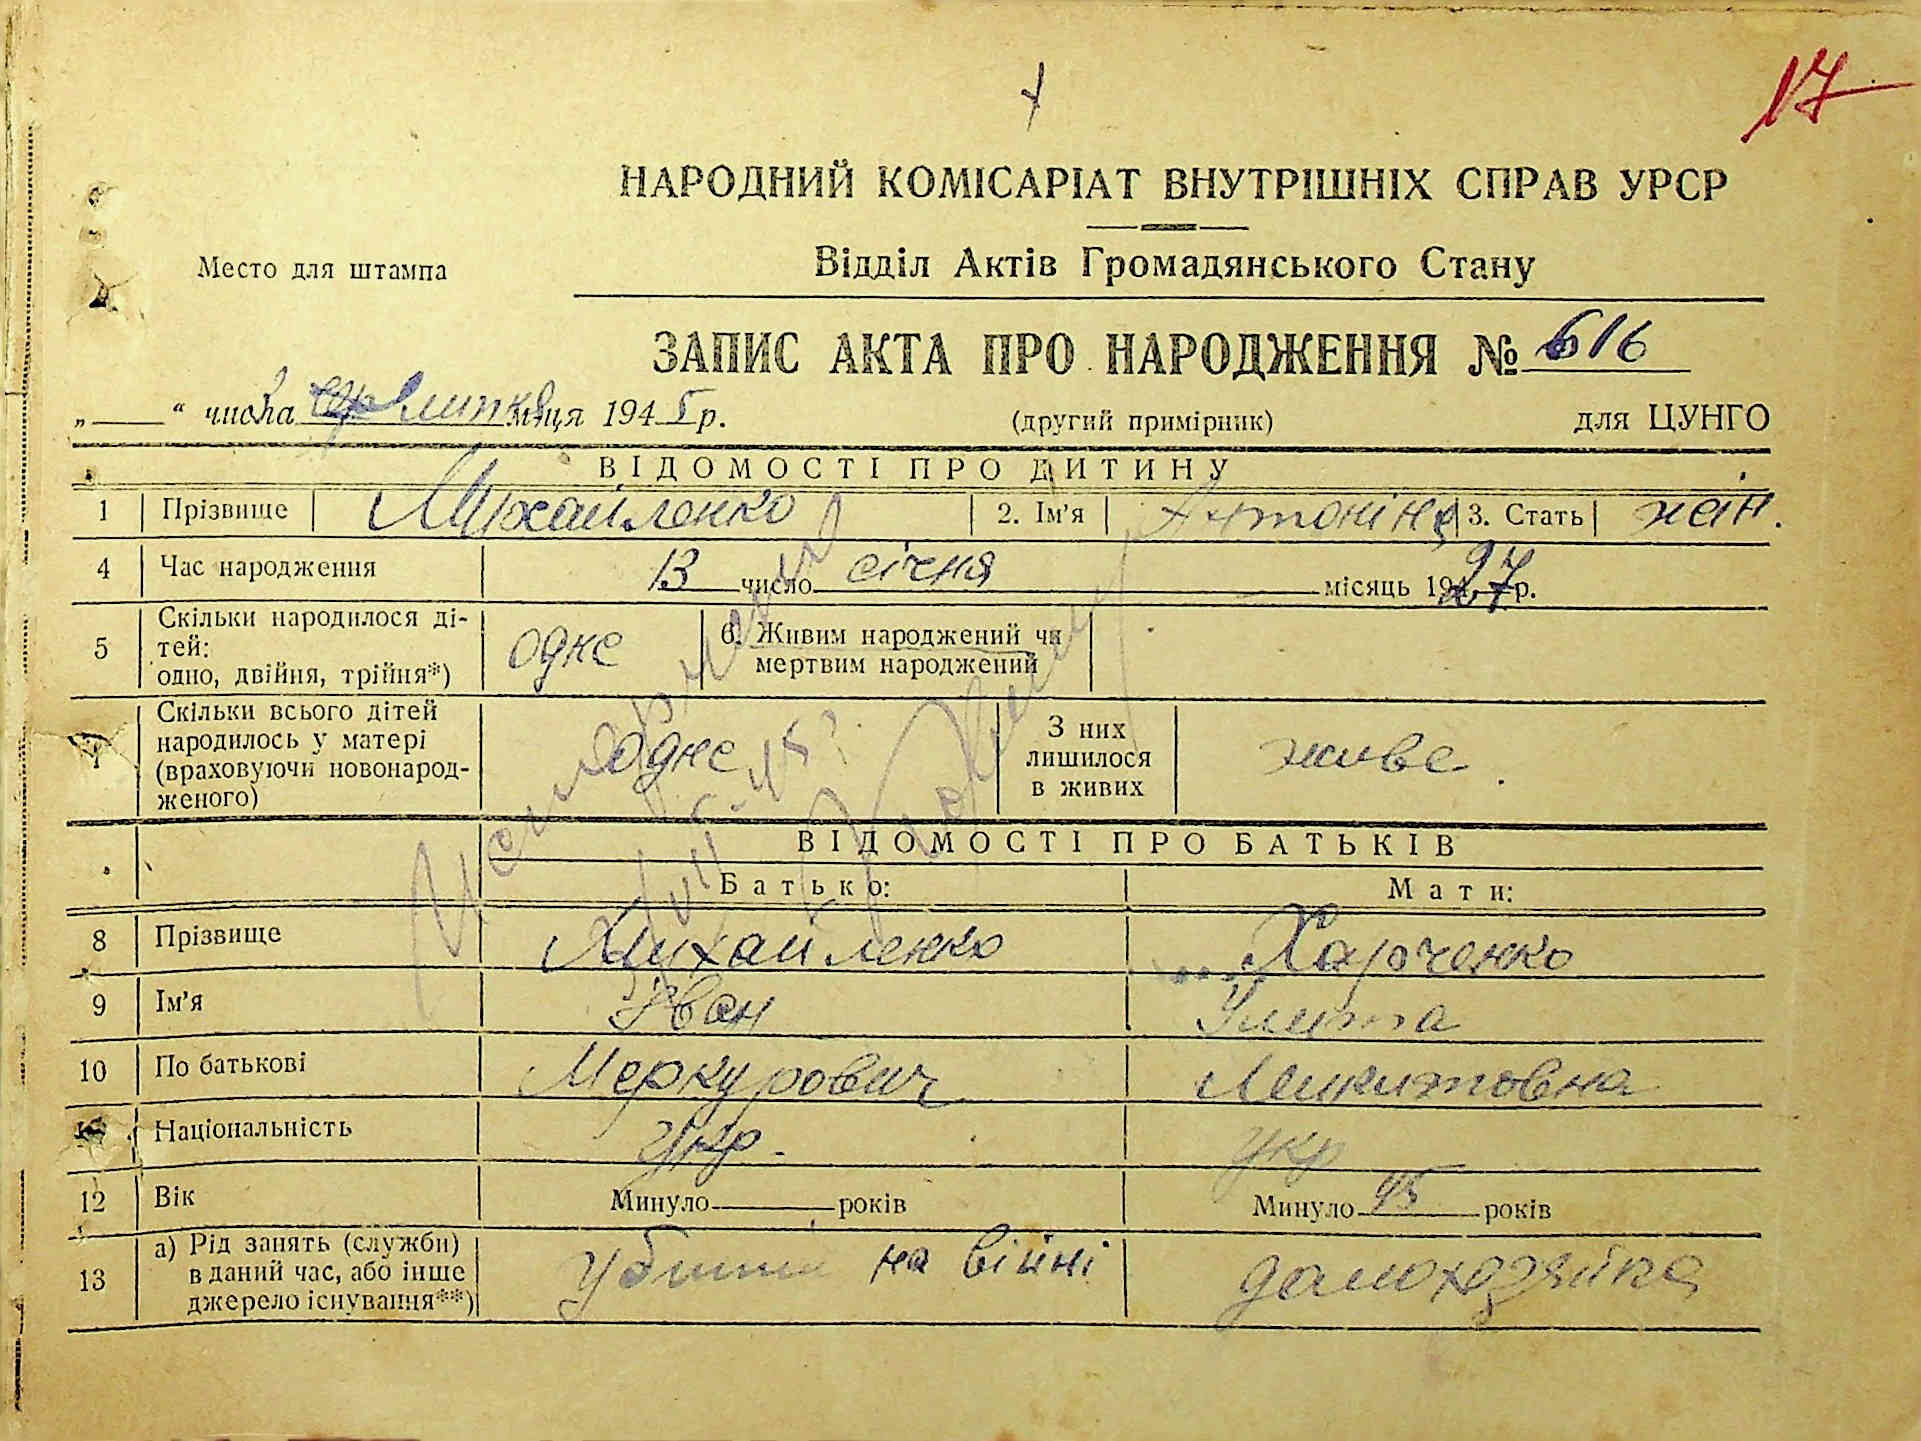 17
НАРОДНИЙ КОМІСАРІАТ ВНУТРІШНІХ СПРАВ УРСР
Место для штампа
Відділ Актів Громадянського Стану
ЗАПИС АКТА ПРО НАРОДЖЕННЯ № 616
„ “ числа липня м-ця 1945 р. (другий примірник) для ЦУНГО
ВІДОМОСТІ ПРО ДИТИНУ
1 Прізвище Михайленко 2. Ім'я Антоніна 3. Стать жін.
4 Час народження 13 число січня місяць 1927 р.
5 Скільки народилося ді-
тей:
одно, двійня, трійня*) одне 6. Живим народжений чи
мертвим народжений
7 Скільки всього дітей
народилось у матері
(враховуючи новонарод-
женого) одне З них
лишилося
в живих живе.
ВІДОМОСТІ ПРО БАТЬКІВ
Батько: Мати:
8 Прізвище Михайленко Харченко
9 Ім'я Іван Улита
10 По батькові Меркурович Микитовна
Національність Укр. укр
12 Вік Минуло років Минуло 45 років
13 а) Рід занять (служби)
в даний час, або інше
джерело існування**) убитий на війні домохазяйка